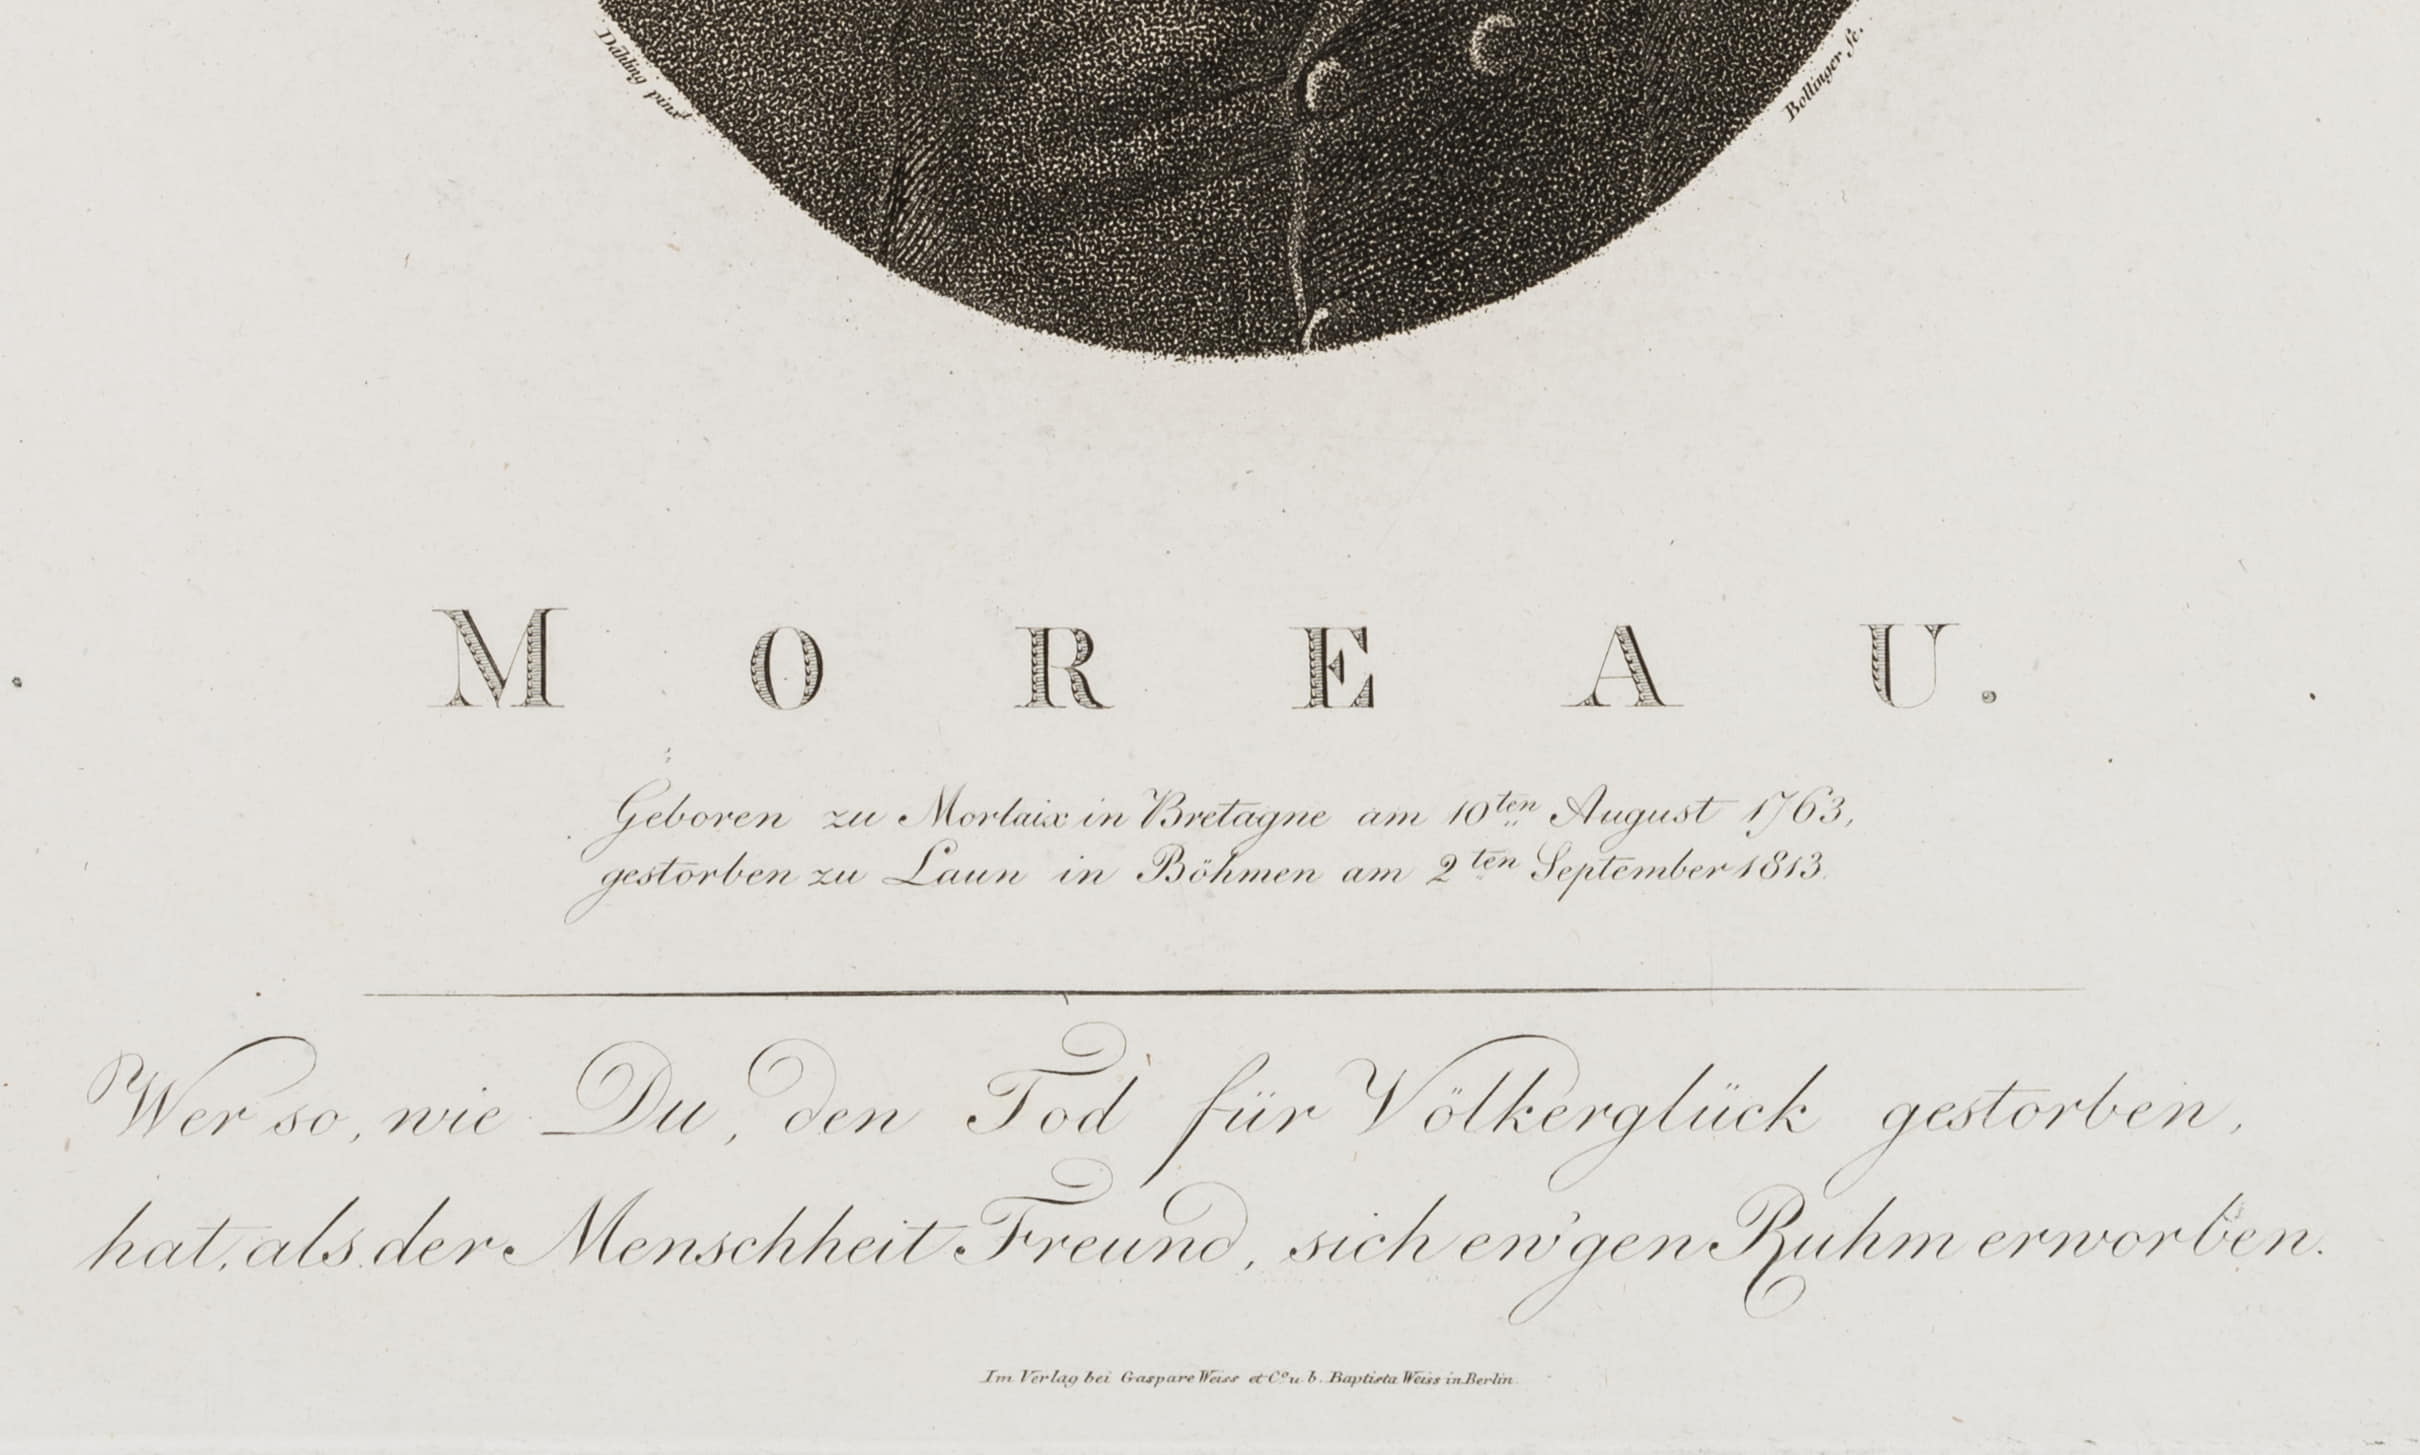 Dähling pinx.t
Bollinger sc.
MOREAU.
Geboren zu Morlaix in Bretagne am 10ten August 1763,
gestorben zu Laun in Böhmen am 2ten September 1813.
Wer so, wie Du, den Tod für Völkerglück gestorben,
hat, als der Menschheit Freund, sich ew'gen Ruhm erworben.
Im Verlag bei Gaspare Weiss et Co. u. b. Baptista Weiss in Berlin.